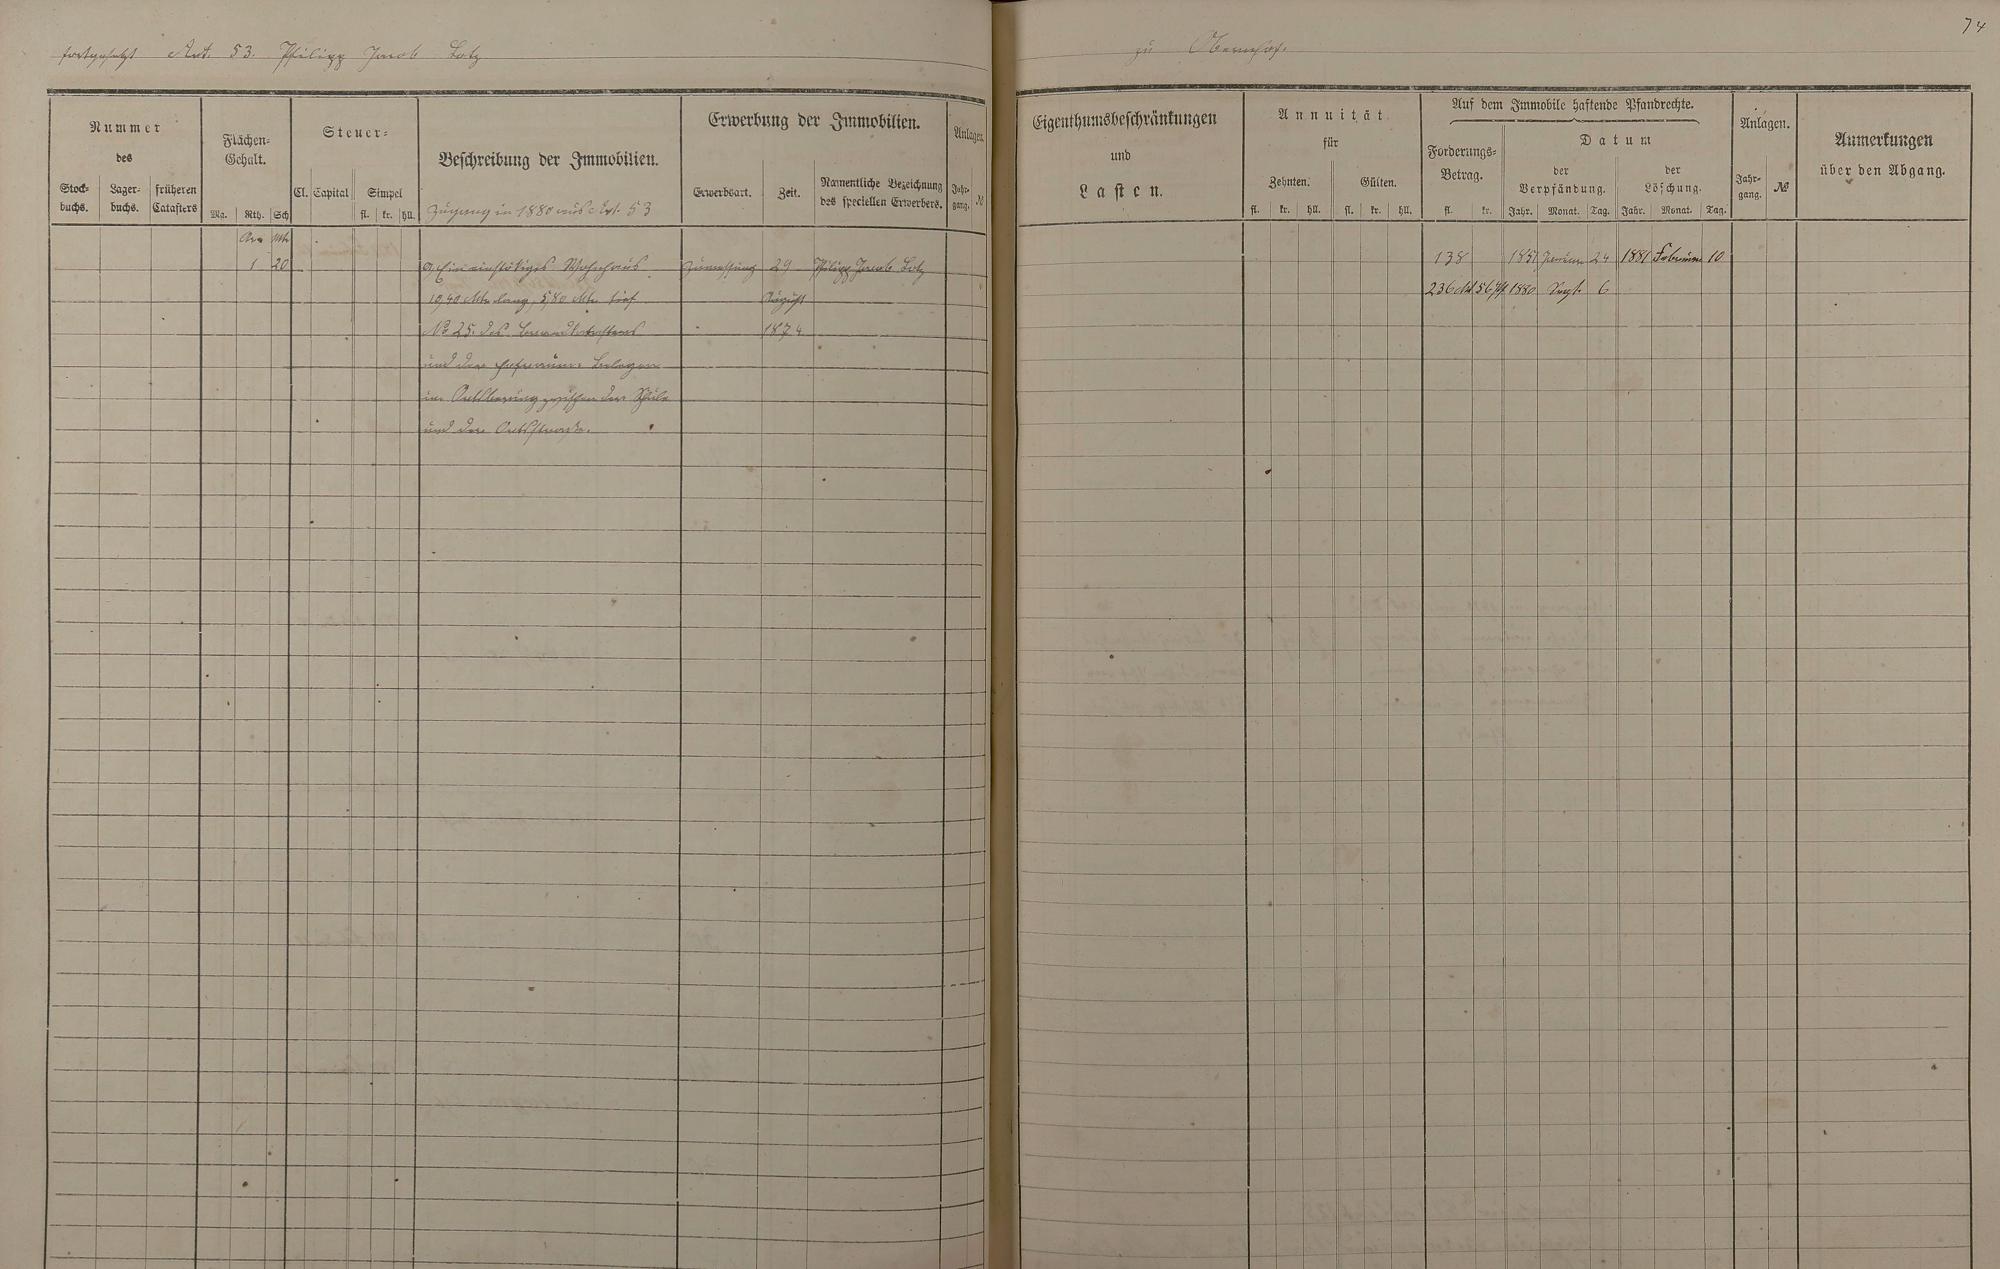 74
fortgesetzt Art. 53. Philipp Jacob Lotz
zu Obernhof.
Nummer
des
Stock-
buchs.
Lager-
buchs.
früheren
Catasters
Flächen-
Gehalt.
Mg. Rth. Sch
Steuer-
Cl. Capital Simpel
fl. kr. hll.
Beschreibung der Immobilien.
Zugang in 1880 aus Art. 53
Erwerbung der Immobilien.
Erwerbsart. Zeit.
Namentliche Bezeichnung
des speciellen Erwerbers.
Anlagen.
Jahr-
gang. №
Ar Mtr
1 20
a, Ein einstökiges Wohnhaus
10,40 Mtr. lang, 5,80 Mtr. tief
No 25. des Brandkatasters
und der Hofraum. Belegen
im Ortsbering zwischen der Schule
und der Ortsstraße.
29
August
1874
Philipp Jacob Lotz
Eigenthumsbeschränkungen
und
Lasten.
Annuität
für
Zehnten. Gülten.
fl. kr. hll. fl. kr. hll.
Auf dem Immobile haftende Pfandrechte.
Forderungs-
Betrag.
fl. kr.
Datum
der
Verpfändung.
Jahr. Monat. Tag.
der
Löschung.
Jahr. Monat. Tag.
Anlagen.
Jahr-
gang. №
Anmerkungen
über den Abgang.
138 1851 Januar 24 1881 Februar 10
236 M 56 Pf 1880 Sept. 6